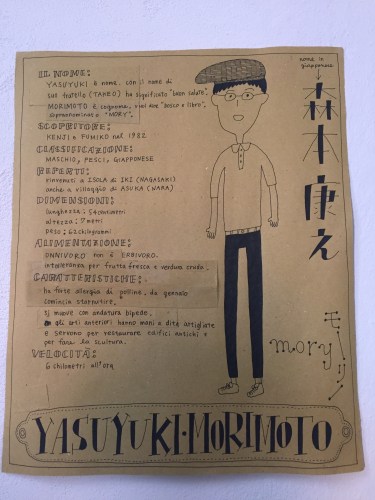 IL NOME:
YASUYUKI è nome. con il nome di
suo fratello (TAKEO) ha significato "buon salute".
MORIMOTO è cognome, vuol dire "bosco e libro",
soprannominao è "MORY".
SCOPRITORE:
KENJI e FUMIKO nel 1982
CLASSIFICAZIONE:
MASCHIO, PESCI, GIAPPONESE
REPERTI:
rinvenuti a ISOLA di IKI (NAGASAKI)
anche a villaggio di ASUKA (NARA)
DIMENSIONI:
lunghezza: 54 centimetri
altezza: 17 metri
peso: 62 chilogrammi
ALIMENTAZIONE:
ONNIVORO non è ERBIVORO.
intolleranza per frutta fresca e verdura cruda.
CARATTERISTICHE:
ha forte allergia di polline, da gennaio
comincia starnutire.
si muove con andatura bipede.
gli arti anteriori hanno mani e dita artigliate
e servono per restaurare edifici antichi e
per fare la scultura.
VELOCITÀ:
6 chilometri all'ora
nome in
giapponese
森本康之
モーリー
mory
YASUYUKI·MORIMOTO